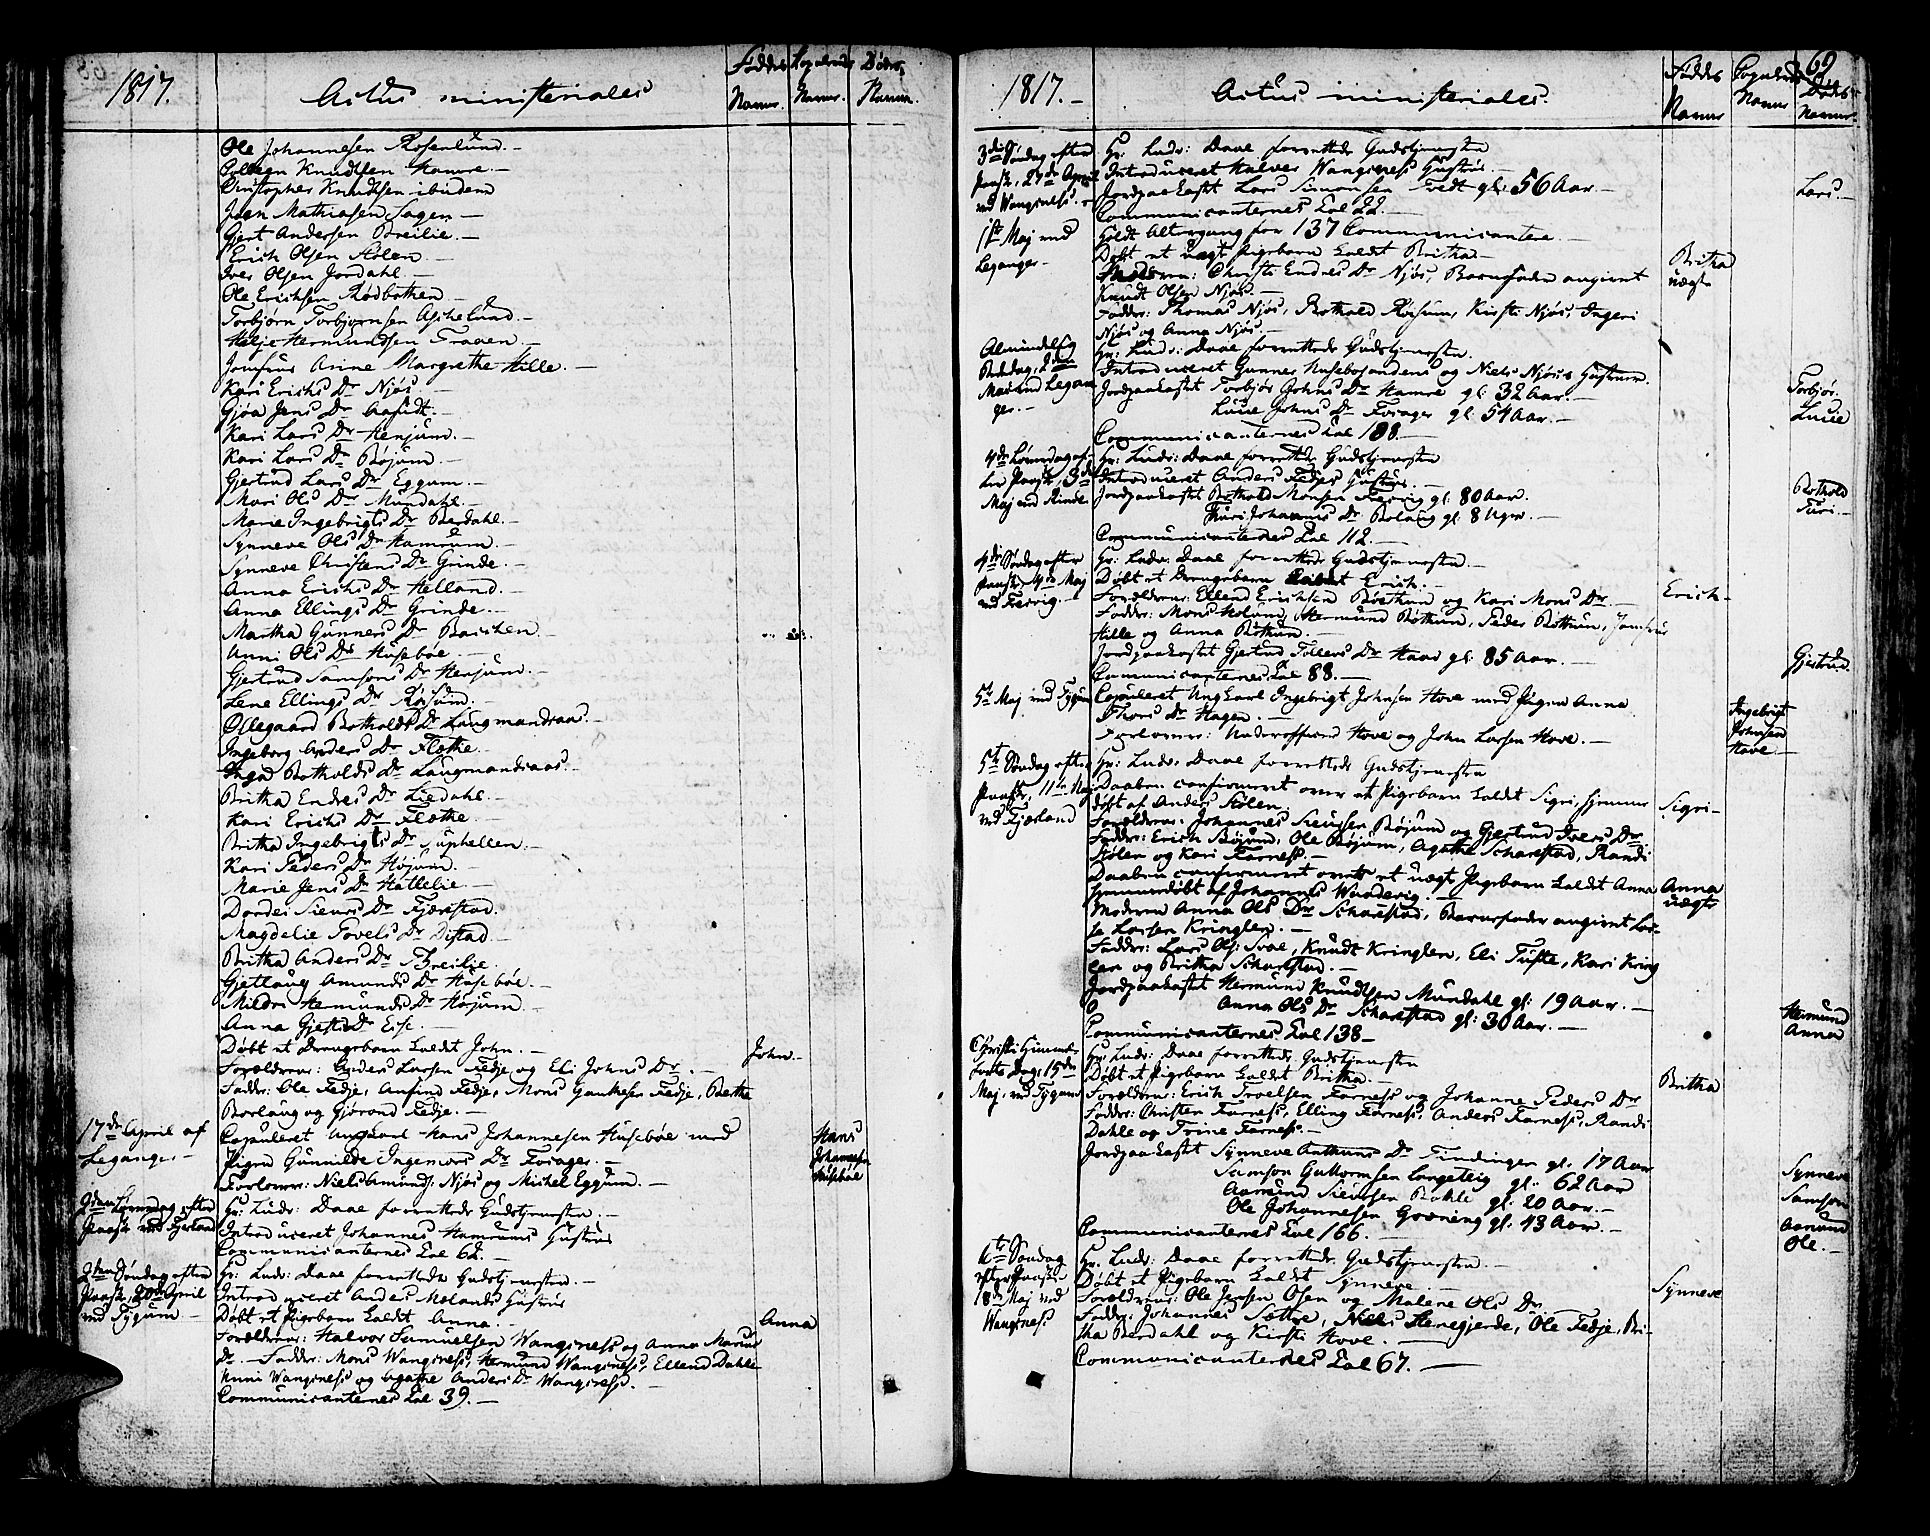 1817.
Actus ministeriales
Føddes Navne.
Copuleredes Navne.
Dødes Navne.
Ole Johannesen Rosenlund. —
Knudsen Hamre. —
Christopher Knudsen ibidem
Joen Mathiasen Sagen —
Gjert Andersen Breilie. —
Erich Olsen Stølen. —
Iver Olsen Jordahl. —
Ole Erichsen Rødbotten —
Torbjørn Torbjørnsen Aschelund. —
Helje Hermundsen Fraaen. —
Jomfrue Anne Margrethe Hille. —
Kari Erichs Dr Njøs. —
Gjøa Jens Dr Aafedt. —
Kari Lars Dr Henjum. —
Kari Lars Dr Bøjum. —
Gjertrud Lars Dr Eggum. —
Mari Ols Dr Mundahl. —
Marie Ingebrigts Dr Berdahl. —
Synneve Ols Dr Hamrum. —
Synneve Christens Dr Grinde. —
Anna Erichs Dr Helland. —
Anna Ellings Dr Grinde. —
Martha Gunners Dr Bacchen. —
Anni Ols Dr Husebøe. —
Gjertrud Samsons Dr Henjum. —
Lene Ellings Dr Røsum. —
Øllegaard Botholds Dr Laugmandsaas. —
Ingeborg Anders Dr Flethe. —
Ingad Botholds Dr Laugmandsaas. —
Britha Endres Dr Liedahl. —
Kari Erichs Dr Flethe. —
Britha Ingebrigts Dr Suphellen. —
Kari Peders Dr Højum. —
Marie Jens Dr Hatlelie. —
Dordei Siurs Dr Fjærestad. —
Magdelie Povels Dr Distad. —
Britha Anders Dr Breilie. —
Gjetlaug Amunds Dr Husebøe. —
Mildri Hermunds Dr Højum. —
Anna Gjests Dr Eise. —
Døbt et Drengebarn kaldet John. —
John. —
Forældrene: Anders Larsen Fedje og Eli Johns Dr. —
Faddr: Ole Fedje, Anfind Fedje, Mons Fedje, Berthe
Borlaug og Gjørond Fedje. —
17de April af
Leganger —
Copuleret Ungkarl Hans Johannesen Husebøe med
Pigen Gunnilde Ingemors Dr Forager. —
Forlovere: Niels Amunds: Njøs og Michel Eggum. —
Hans
Johannesen
Husebøe
2den Løverdag efter
Paaske ved Fjerland
Hr: Ludv: Daae forrettede Gudstjenesten. —
Introduceret Johannes Hamrums Hustrue
Communicanternes Tal 62. —
2den Søndag efter
Paaske, 20de April
ved Tygum —
Hr: Ludv: Daae forrettede Gudstjenesten. —
Introduceret Anders Mælands Hustrue
Døbt et Pigebarn kaldet Anna. —
Anna
Forældrene: Halvor Samuelsen Wangsness og Anna Marcus
Dr. — Faddr: Mons Wangsness, Hermund Wangsness, Ellend Dahle
Unni Wangsness og Agathe Anders Dr Wangsness. —
Communicanternes Tal 39. —
1817. —
Actus ministeriales.
Føddes Navne
Copuleredes Navne
69
Dødes Navne.
3die Søndag efter
Paaske, 27de April
ved Wangsness. —
Hr: Ludv: Daae forrettede Gudstjenesten
Introduceret Halver Wangsness Hustrue
Jordpaakastet Lars Simonsen Tvedt gl: 56 Aar. —
Lars. —
Communicanternes Tal 22. —
1ste Maj ved
Leganger —
Holdt Altergang for 137 Communicantere. —
Døbt et uægte Pigebarn kaldet Britha —
Britha
uægte
Moderen: Christi Endres Dr Njøs, Barnefader angivet
Knudt Olsen Njøs. —
Faddr: Thomas Njøs, Bothold Røisum, Kirsti Njøs, Ingeri
Njøs og Anna Njøs. —
Almindelig
Bededag, 2den
Maj ved Legan
ger. —
Hr: Ludv: Daae forrettede Gudstjenesten.
Introduceret Gunner Husebøsandens og Niels Njøsis Hustruer.
Jordpaakastet Torbjør Johns Dr Hamre gl: 32 Aar. —
Lucie Johns Dr Forager gl: 54 Aar. —
Torbjør.
Lucie
Communicanternes Tal 188. —
4de Løverdag ef-
ter Paaske, 3die
Maj ved Rinde
Hr: Ludv: Daae forrettede Gudstjenesten
Introduceret Anders Fedjes Hustrue. —
Jordpaakastet Bothold Monsen Feirrig gl: 80 Aar.
Turi Johannes Dr Bolaug gl: 8 Uger. —
Bothold
Turi. —
Communicanternes Tal 112. —
4de Søndag efter
Paaske, 4de Maj
ved Feirrig. —
Hr: Ludv: Daae forrettede Gudstjenesten. —
Døbt et Drengebarn kaldet Erich. —
Erich —
Forældrene: Ellend Erichsen Bøthun og Kari Mons Dr —
Faddr: Mons Holum, Hermund Bøthun, Peder Bøthun, Jomfrue
Hille og Anna Bøthun. —
Jordpaakastet Gjertrud Tollevs Dr Haae gl: 85 Aar. —
Gjertrud.
Communicanternes Tal 88. —
5te Maj ved Tygum
Copuleret Ungkarl Ingebrigt Johnsen Hove med Pigen Anna
Thors Dr Hagen. —
Forlovere: Underofficeer Hove og John Larsen Hove. —
Ingebrigt
Johnsen
Hove —
5te Søndag efter
Paaske, 11te Maj
ved Fjærland
Hr: Ludv: Daae forrettede Gudstjenesten
Daaben confirmeret over et Pigebarn kaldet Sigri, hjemme
døbt af Anders Stølen. —
Sigri —
Forældrene: Johannes Siursen Bøjum og Gjertrud Ivers Dr
Faddr: Erich Bøjum, Ole Bøjum, Agathe Scharestad, Randi
Stølen og Kari Farness. —
Daaben confirmeret over et uægte Pigebarn kaldet Anna
hjemmedøbt af Johannes Wunderig. —
Anna
uægte
Moderen Anna Ols Dr Scharestad, Barnefader angivet Las-
se Larsen Kringlen. —
Faddr: Lars Ols: Svae, Knudt Kringlen, Eli Tufte, Kari Kring
len og Britha Scharestad. —
Jordpaakastet Hermund Knudtsen Mundahl gl: 19 Aar. —
Anna Ols Dr Scharestad gl: 30 Aar. —
Hermund
Anna
Communicanternes Tal 138 —
Christi Himmel-
farts Dag, 15de
Maj, ved Tygum
Hr: Ludv: Daae forrettede Gudstjenesten
Døbt et Pigebarn kaldet Britha. —
Britha
Forældrene: Erich Troelsen Farness og Johanne Peders Dr
Faddr: Christen Farness, Elling Farness, Anders Farness, Randi
Dahle og Trine Farness. —
Jordpaakastet Synneve Anthuns Dr Tindingen gl. 17 Aar
Samson Guttormsen Longeteig gl: 62 Aar
Aamund Siursen Bahle gl: 20 Aar. —
Ole Johannesen Grøning gl: 43 Aar. —
Synneve
Samson
Aamund
Ole. —
Communicanternes Tal 166. —
6te Søndag
efter Paaske
18de Maj ved
Wangsness
Hr. Ludv: Daae forrettede Gudstjenesten. —
Døbt et Pigebarn kaldet Synneve —
Synneve
Forældrene: Ole Jensen Osen og Malene Ols Dr
Faddr: Johannes Sættre, Niels Henegjerde, Ole Fedje, Bri-
tha Berdahl og Kirsti Hove. —
Communicanternes Tal 67. —